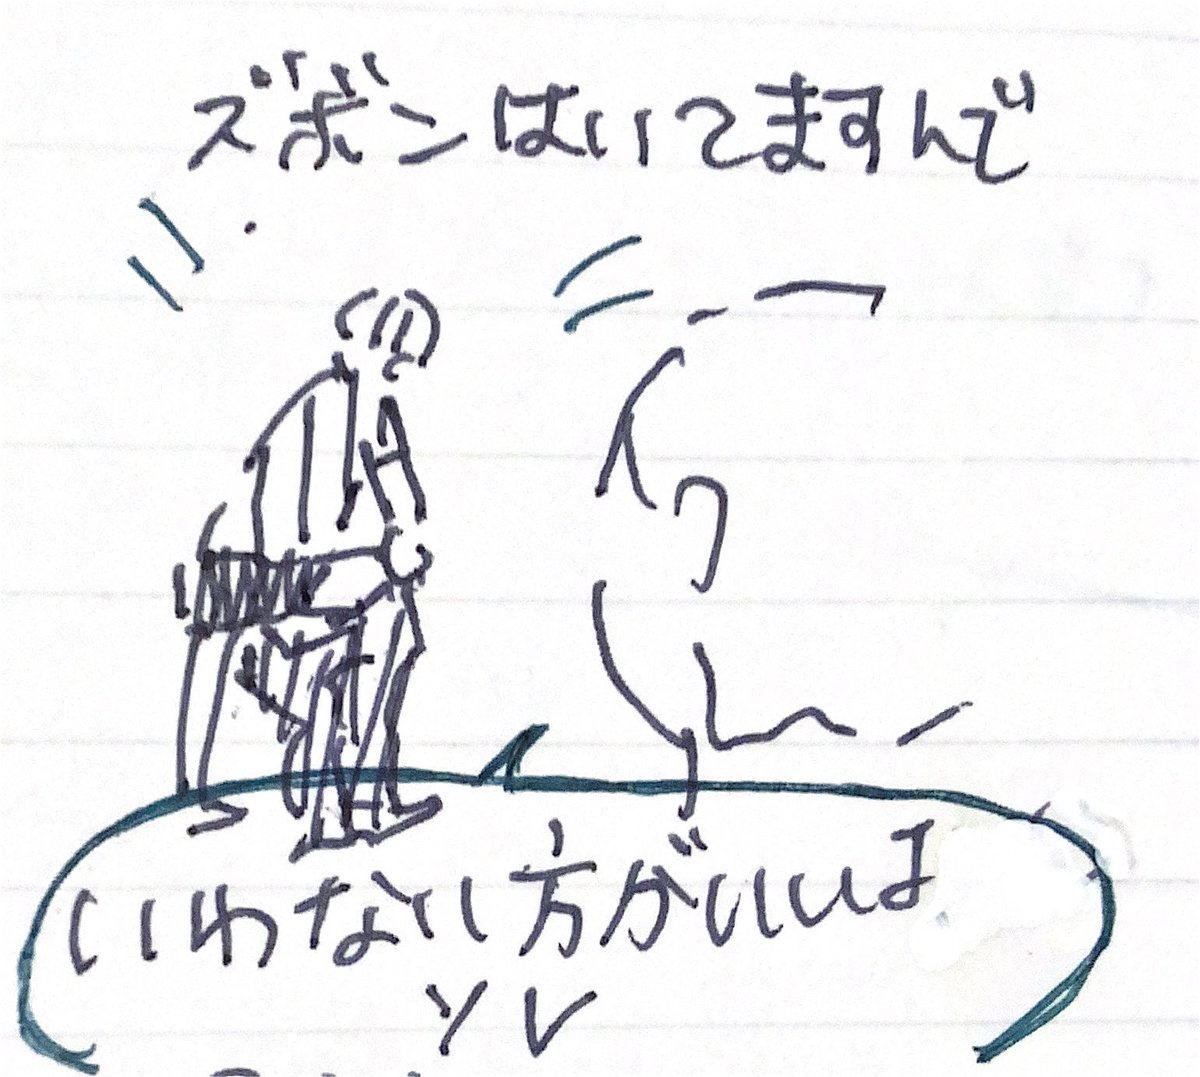 ズボンはいてますんで
いわない方がいいよ
ソレ